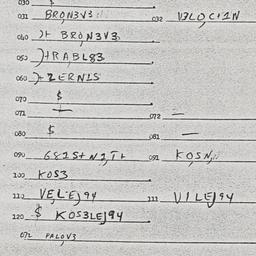 030 $
031 BRON3V3 032 V3LOC1N
040 )+ BRON3V3
050 )+RABL83
060 )+ZERN1S
070 $
071 — 072 —
080 $ 081 —
090 091 KOSN
100 KOS3
110 VEL-EJ94 111 V1LEJ94
120 $ KOS3LEJ94
072 PALOV3